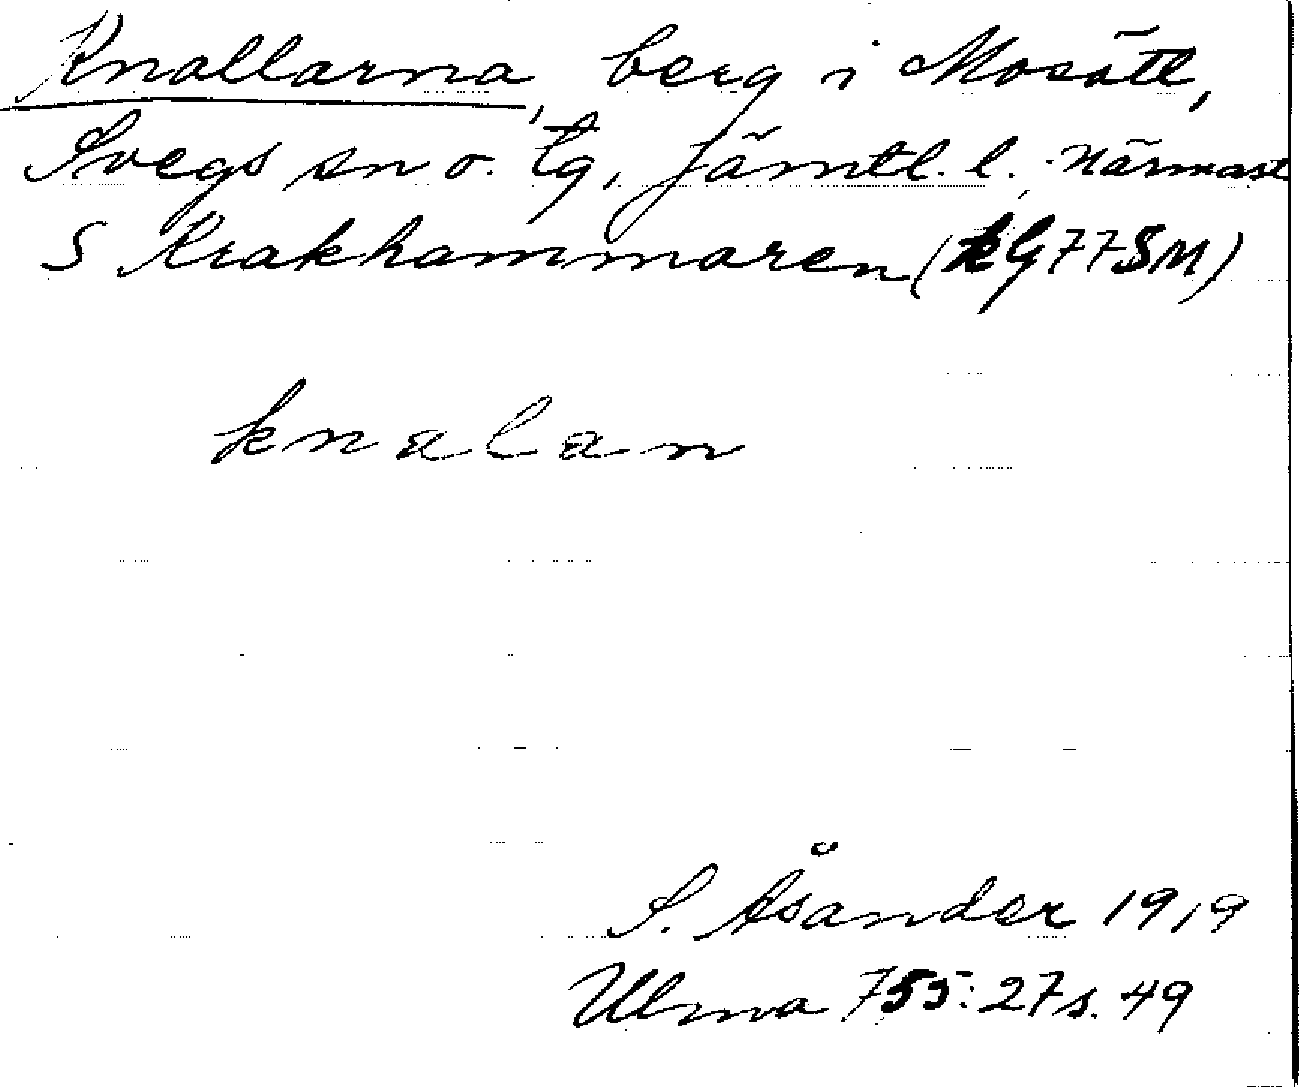 Knallarna, berg i Mosätt,
Svegs sn o. tg, Jämtl. l. Närmast
S Krakhammaren (kG77SM)
knalan
S. Åsander 1919
Ulma 755:27 s. 49